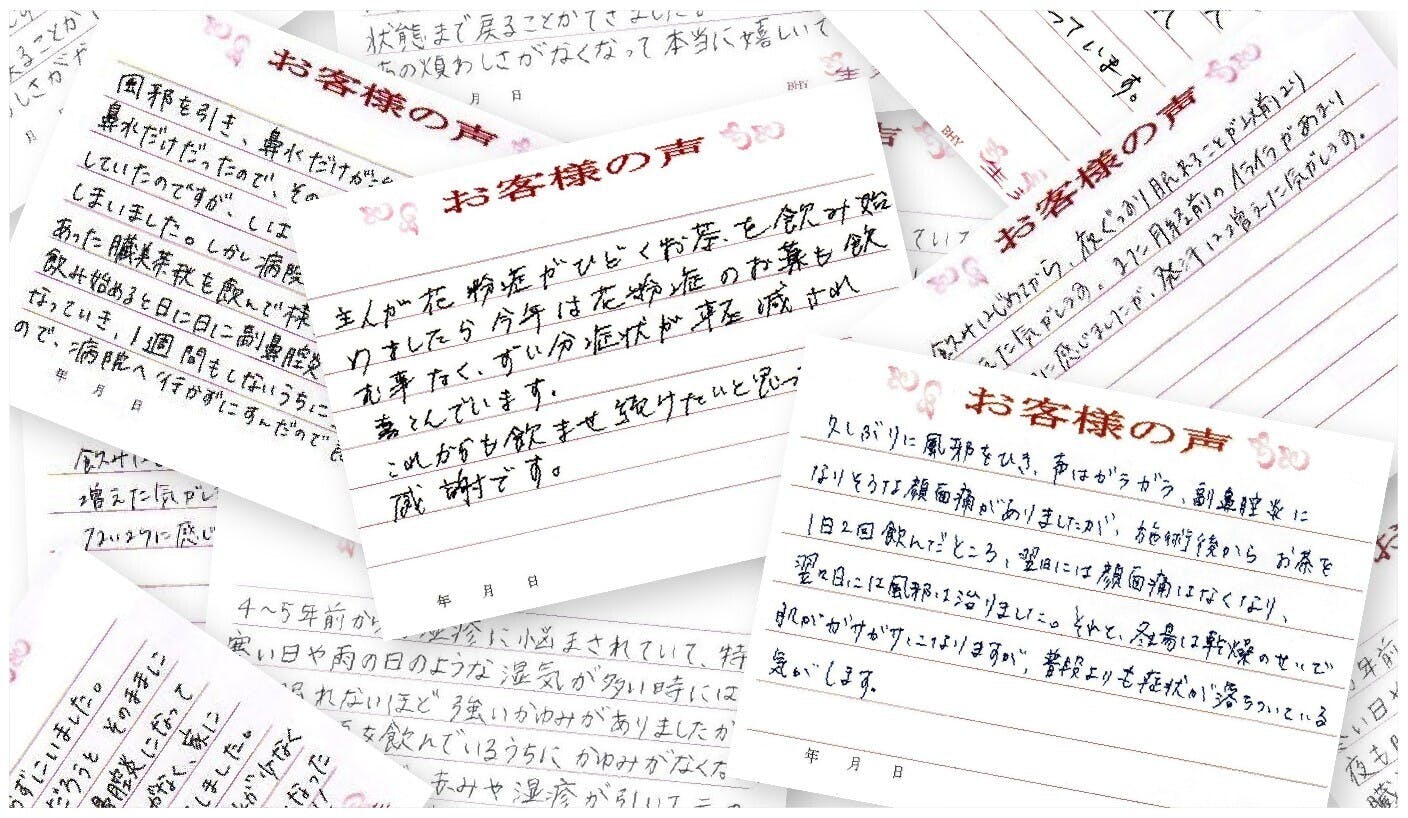 状態まで戻ることができました。
の煩わしさがなくなって本当に嬉しいで
月 日
BHY
っています。
BHY
お客様の声
風邪を引き、鼻水だけが
鼻水だけだったので、その
していたのですが、しば
しまいました。しかし病院
あった臓美茶秋を飲んで様
飲み始めると日に日に副鼻腔炎
なっていき、1週間もしないうちに
ので、病院へ行かずにすんだので
年 月 日
お客様の声
主人が花粉症がひどくお茶を飲み始
めましたら今年は花粉症のお薬も飲
む事なく、ずい分症状が軽減され
喜んでいます。
これからも飲ませ続けたいと思っ
感謝です。
年 月 日
お客様の声
飲みはじめてから、夜ぐっすり眠れることが以前より
えた気がします。また月経前のイライラがあまり
に感じましたが、発汗は増えた気がします。
お客様の声
久しぶりに風邪をひき、声はガラガラ、副鼻腔炎に
なりそうな顔面痛がありましたが、施術後から お茶を
1日2回飲んだところ、翌日には顔面痛はなくなり、
翌々日には風邪は治りました。それと、冬場は乾燥のせいで
肌がガサガサになりますが、普段よりも症状が落ちついている
気がします。
年 月 日
飲みは
増えた気がし
ないように感じ
4〜5年前から 湿疹に悩まされていて、特
寒い日や雨の日のような湿気が多い時には
眠れないほど強いかゆみがありましたが
を飲んでいるうちにかゆみがなくな
赤みや湿疹が引いて
ずにいました。
だろうと そのままに
鼻腔炎になって
がなく、家に
しました。
が少なく
なった
年前
夜も
臓